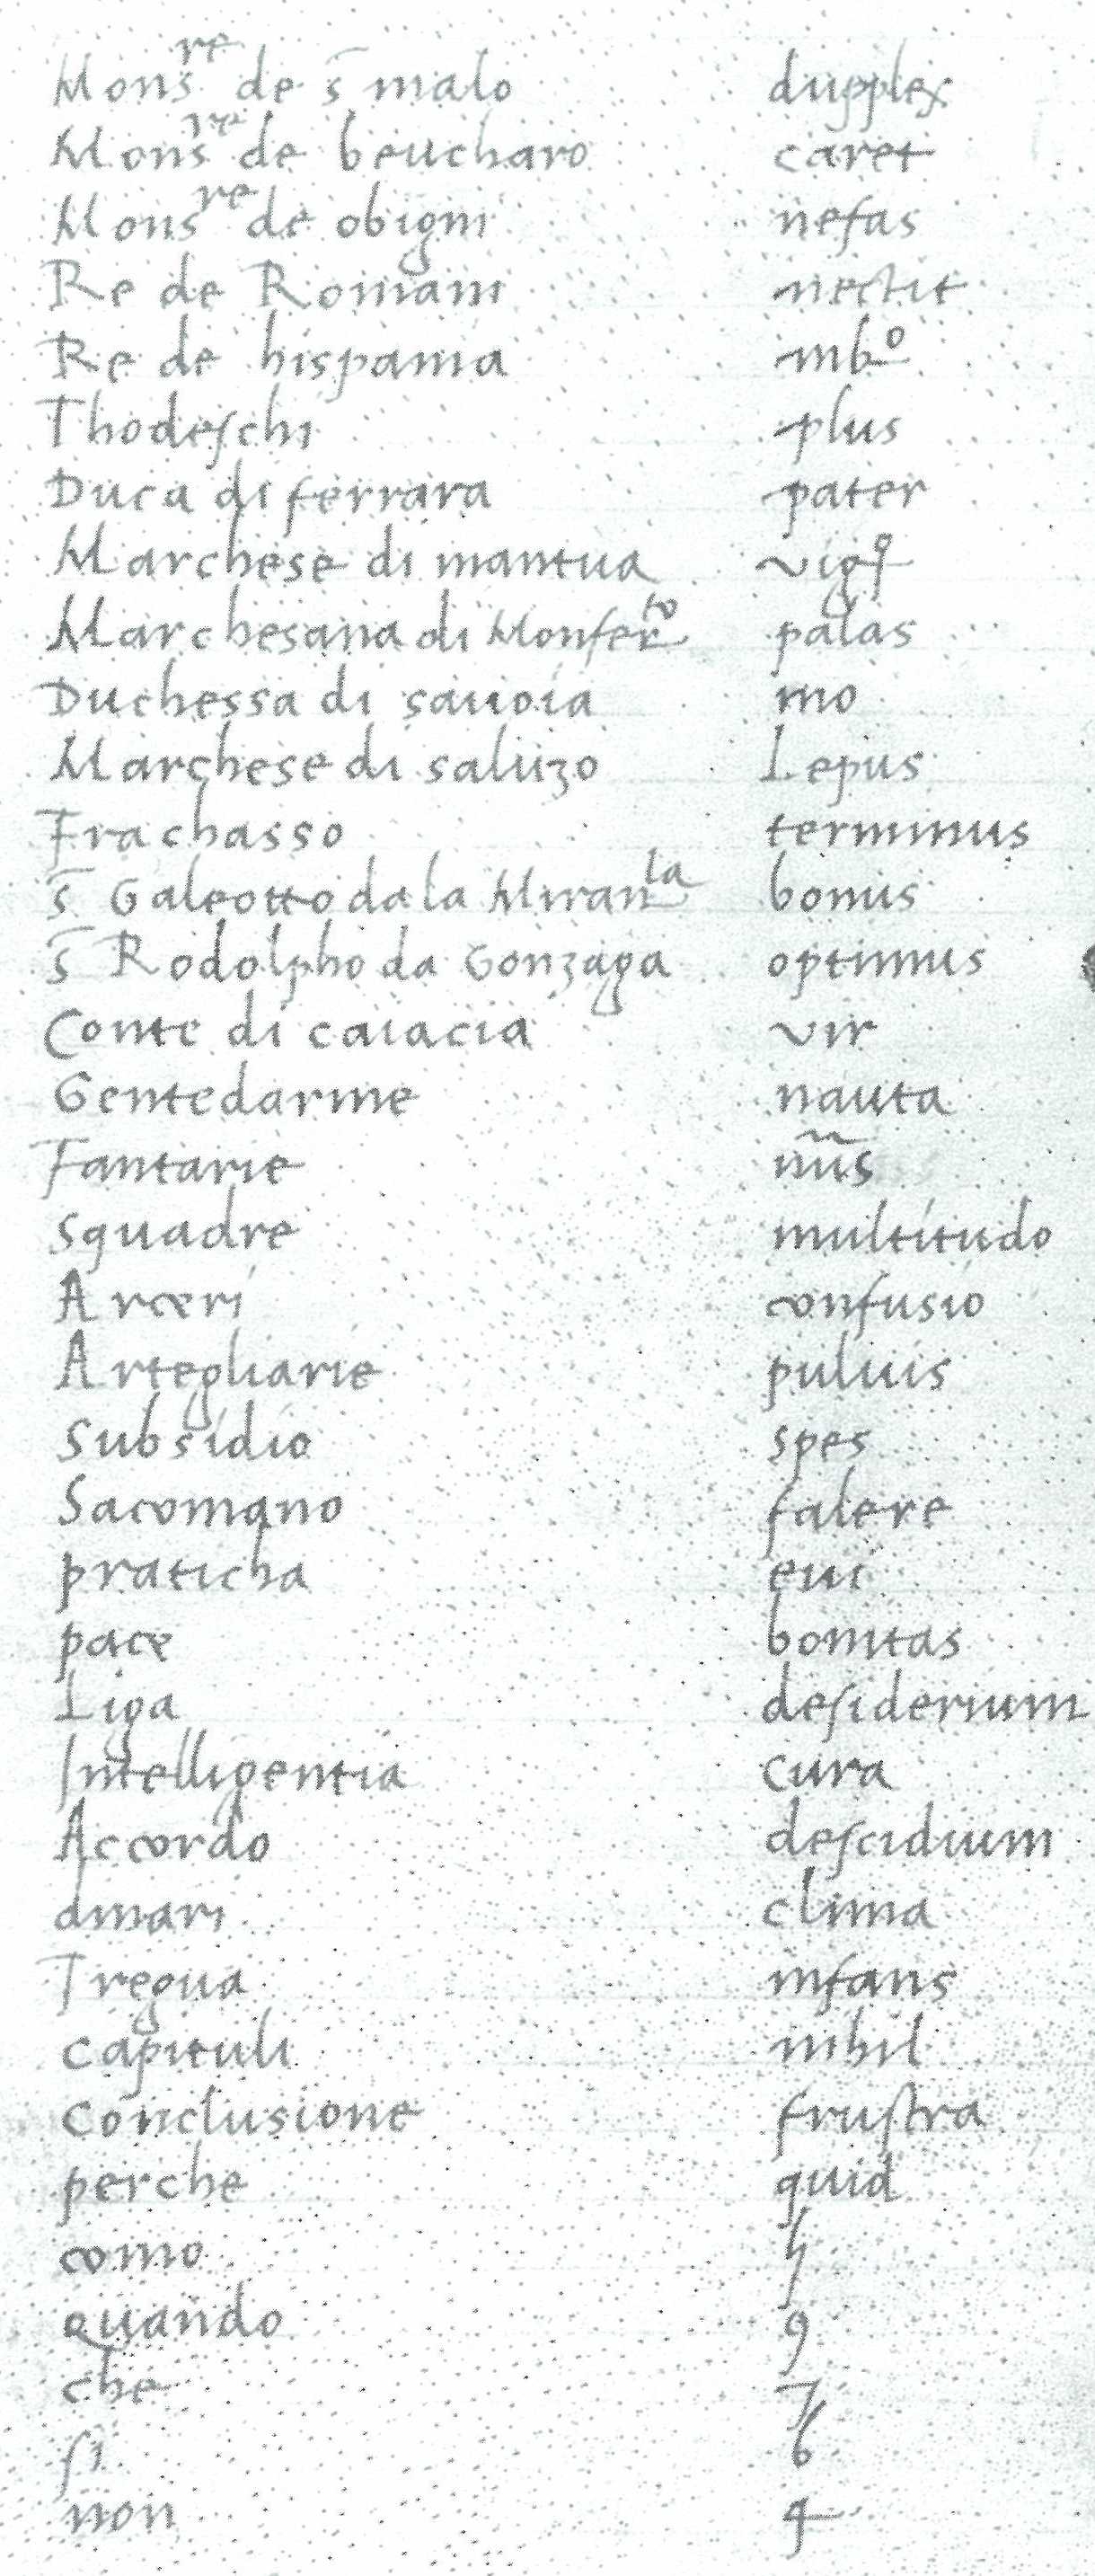 Monsre de s̄ malo dupplex
Monsre de beucharo caret
Monsre de obigni nefas
Re de Romani nectit
Re de hispania mbo
Thodeschi plus
Duca di ferrara pater
Marchese di mantua
Marchesana di Monferto palas
Duchessa di sauoia mo
Marchese di saluzo Lepus
Frachasso terminus
s̄ Galeotto da la Miranla bonus
s̄ Rodolpho da Gonzaga optimus
Conte di caiacia vir
Gentedarme nauta
Fantarie
squadre multitudo
Arceri confusio
Artegliarie puluis
Subsidio spes
Sacomano falere
praticha eui
pace bonitas
Liga desiderium
Intelligentia cura
Accordo descidium
dinari clima
Tregua infans
capituli nihil
conclusione frustra
perche quid
como
quando 9
che 7
si 6
non 4